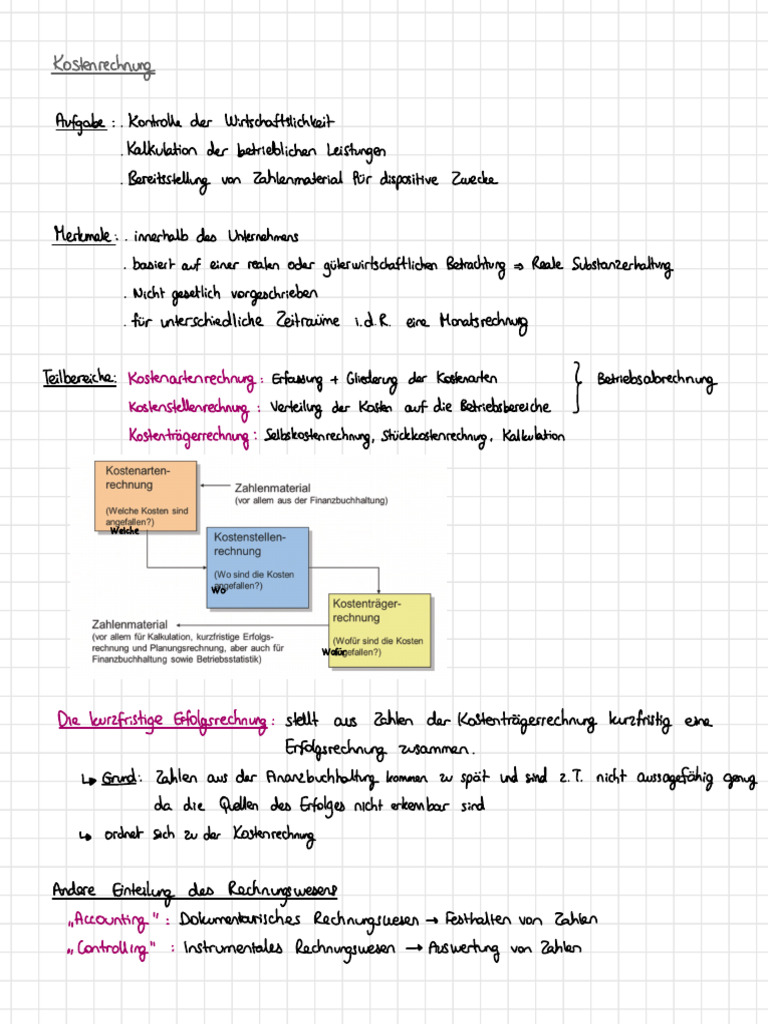 Kostenrechnung
Aufgabe: . Kontrolle der Wirtschaftslichkeit
. Kalkulation der betrieblichen Leistungen
. Bereitsstellung von Zahlenmaterial für dispositive Zwecke
Merkmale: . innerhalb des Unternehmens
. basiert auf einer realen oder güterwirtschaftlichen Betrachtung ⇒ Reale Substanzerhaltung
. Nicht gesetlich vorgeschrieben
. für unterschiedliche Zeitraüme i.d.R. eine Monatsrechnung
Teilbereiche: Kostenartenrechnung: Erfassung + Gliederung der Kostenarten } Betriebsabrechnung
Kostenstellenrechnung: Verteilung der Kosten auf die Betriebsbereiche
Kostenträgerrechnung: Selbskostenrechnung, Stückkostenrechnung, Kalkulation
Kostenarten-
rechnung
(Welche Kosten sind
angefallen?)
Welche
Zahlenmaterial
(vor allem aus der Finanzbuchhaltung)
Kostenstellen-
rechnung
(Wo sind die Kosten
angefallen?)
Wo
Kostenträger-
rechnung
(Wofür sind die Kosten
angefallen?)
Wofür
Zahlenmaterial
(vor allem für Kalkulation, kurzfristige Erfolgs-
rechnung und Planungsrechnung, aber auch für
Finanzbuchhaltung sowie Betriebsstatistik)
Die kurzfristige Erfolgsrechnung: stellt aus Zahlen der Kostenträgerrechnung kurzfristig eine
Erfolgsrechnung zusammen.
↳ Grund: Zahlen aus der Finanzbuchhaltung kommen zu spät und sind z.T. nicht aussagefähig genug
da die Quellen des Erfolges nicht erkennbar sind
↳ ordnet sich zu der Kostenrechnung
Andere Einteilung des Rechnungswesens
„Accounting": Dokumentarisches Rechnungswesen → Festhalten von Zahlen
„Controlling" : Instrumentales Rechnungswesen → Auswertung von Zahlen